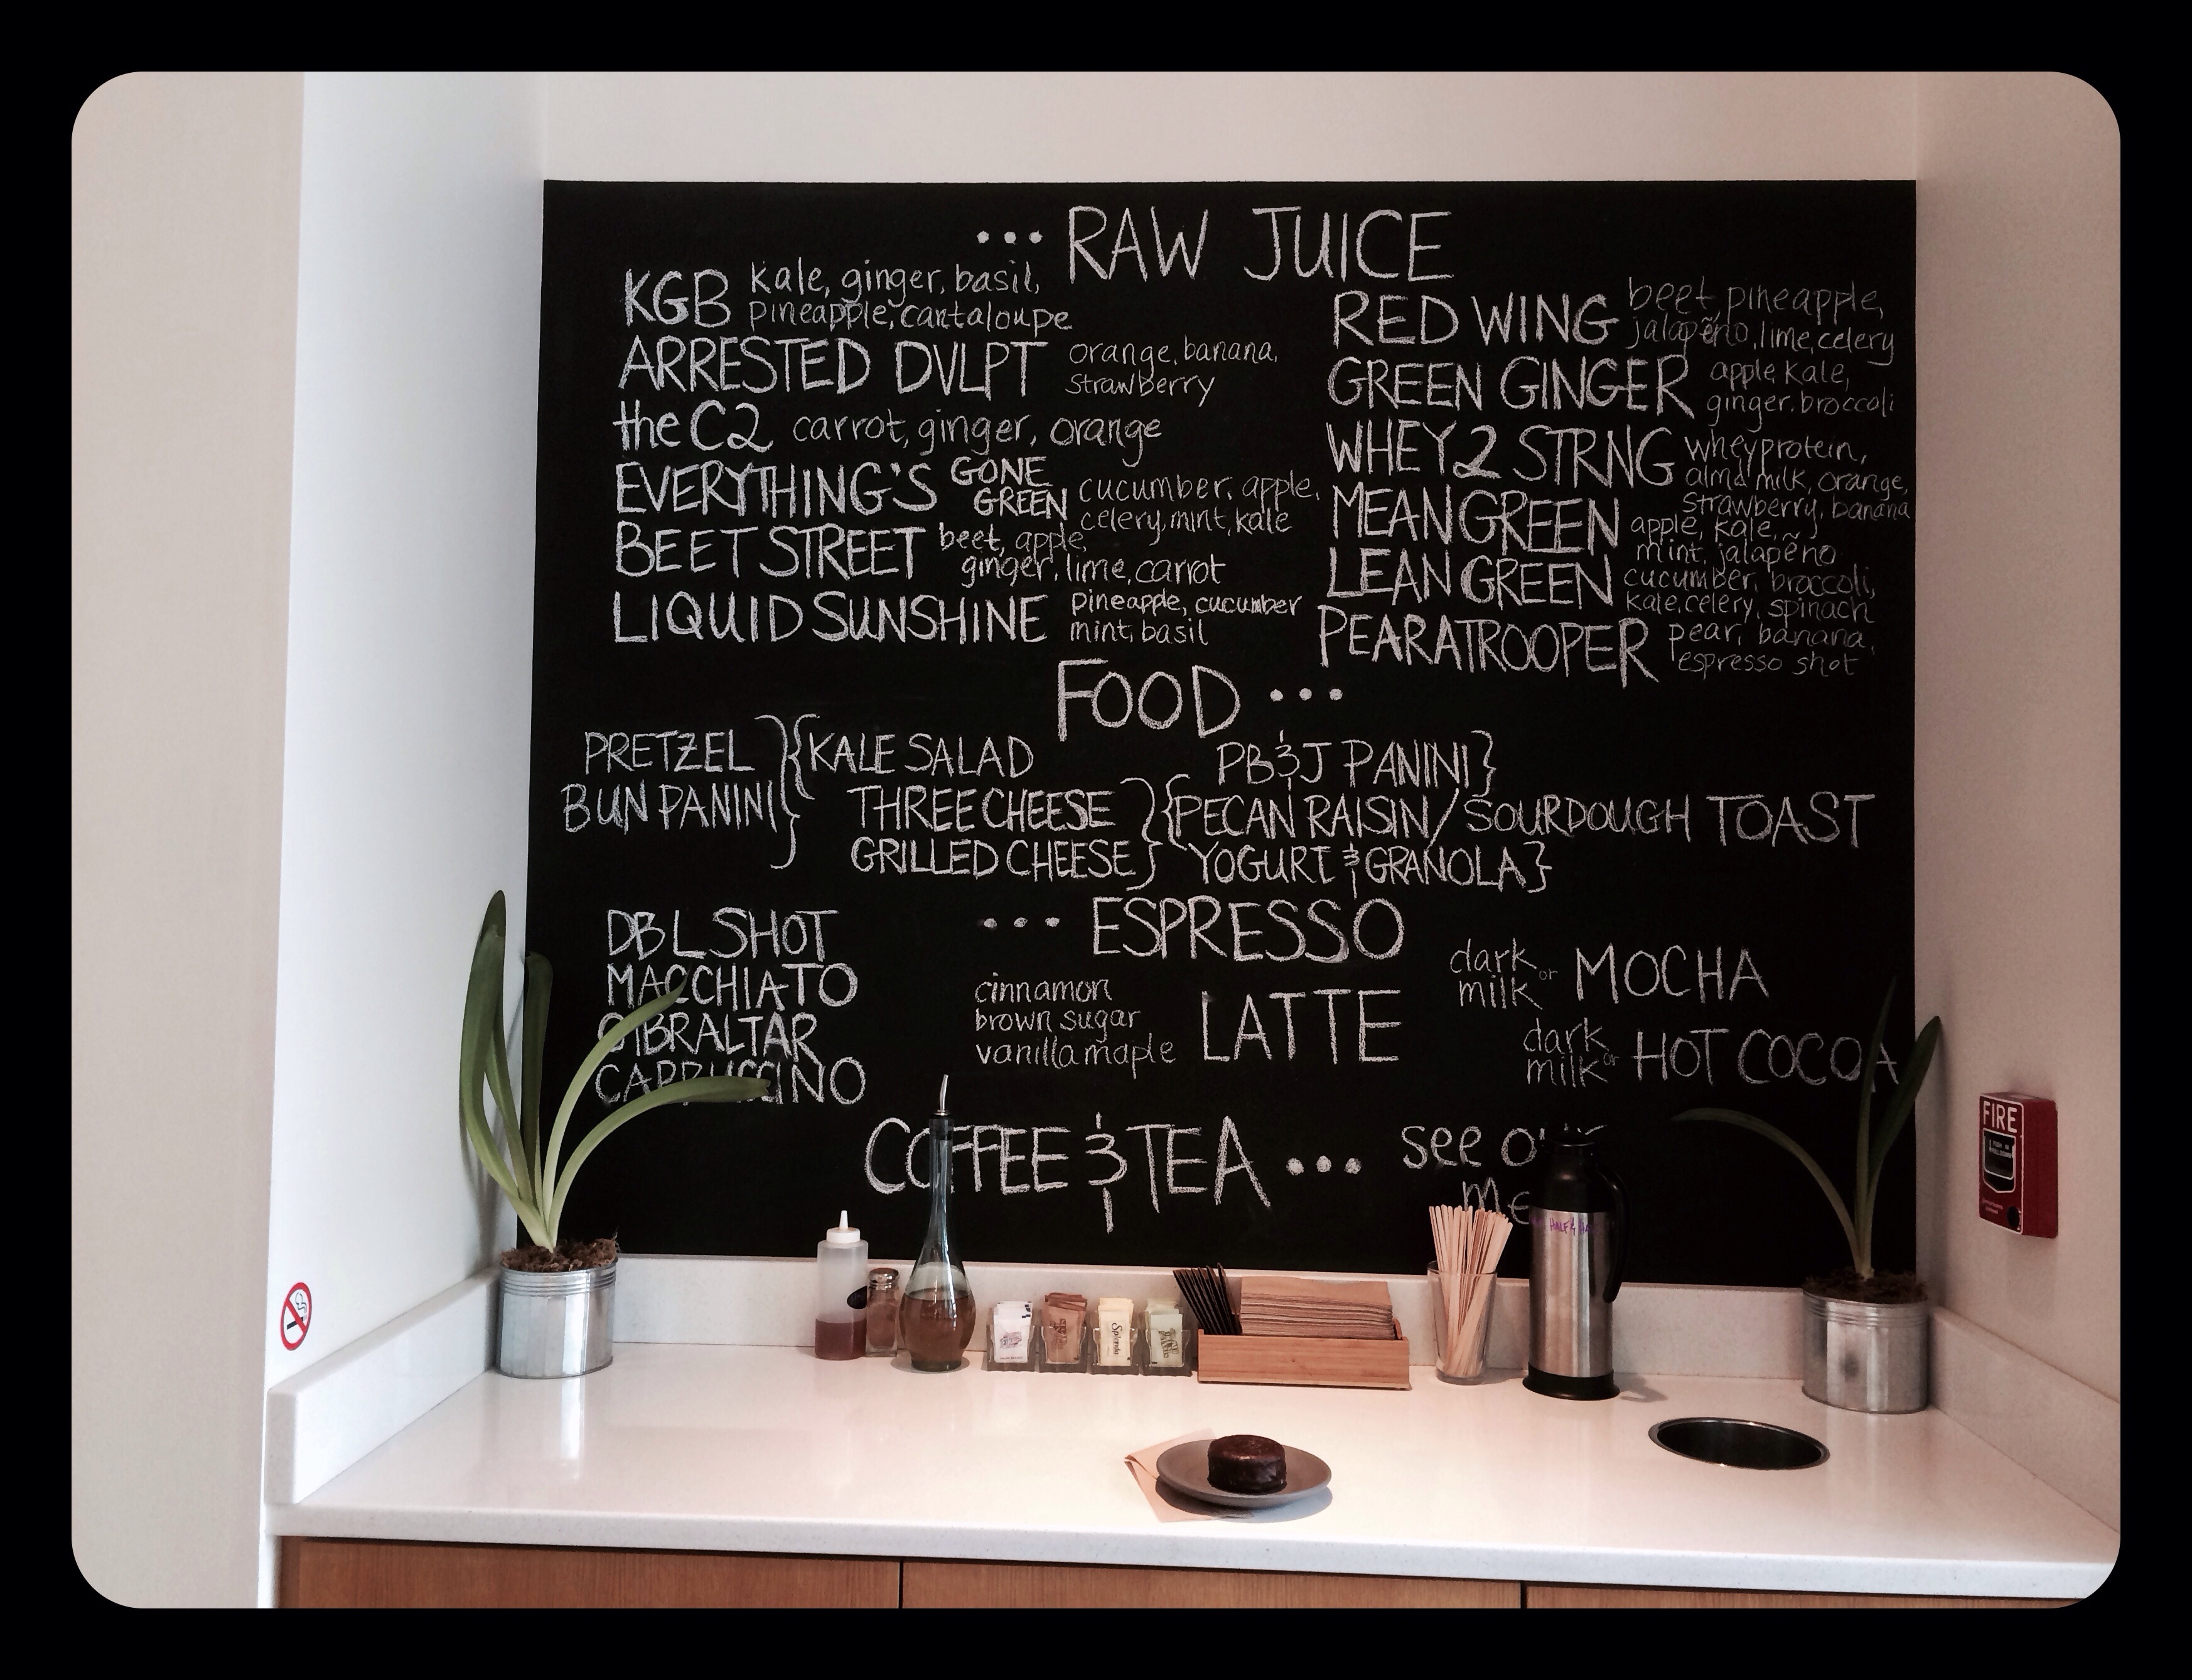 ... RAW JUICE
KGB kale, ginger, basil,
pineapple, cantaloupe
ARRESTED DVLPT orange, banana,
strawberry
the C2 carrot, ginger, orange
EVERYTHING'S GONE
GREEN cucumber, apple,
celery, mint, kale
BEET STREET beet, apple,
ginger, lime, carrot
LIQUID SUNSHINE pineapple, cucumber
mint, basil
RED WING beet, pineapple,
jalapeño, lime, celery
GREEN GINGER apple, kale,
ginger, broccoli
WHEY 2 STRNG whey protein,
almd milk, orange,
strawberry, banana
MEAN GREEN apple, kale,
mint, jalapeño
LEAN GREEN cucumber, broccoli,
kale, celery, spinach
PEARATROOPER pear, banana,
espresso shot
FOOD ...
PRETZEL
BUN PANINI
KALE SALAD
THREE CHEESE
GRILLED CHEESE
PB&J PANINI
PECAN RAISIN / SOURDOUGH TOAST
YOGURT & GRANOLA
... ESPRESSO
DBL SHOT
MACCHIATO
GIBRALTAR
CAPPUCCINO
cinnamon
brown sugar
vanilla maple
LATTE
dark or
milk MOCHA
dark or
milk HOT COCOA
COFFEE & TEA ... see our
FIRE
Splenda
HALF &